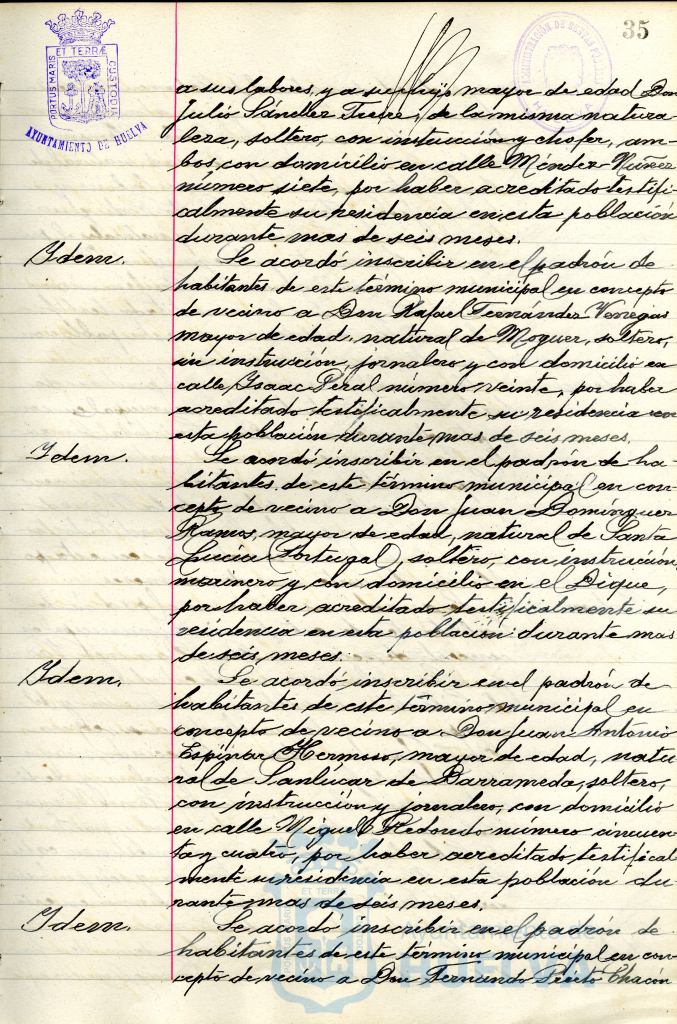 35
PORTUS MARIS ET TERRÆ CUSTODIA
AYUNTAMIENTO DE HUELVA
a sus labores, y a su hijo mayor de edad Don
Julio Sández Freire, de la misma natura-
leza, soltero, con instrucción y chofer, am-
bos con domicilio en calle Méndez-Nuñez
número siete, por haber acreditado testifi-
calmente su residencia en esta población
durante mas de seis meses.
Idem.
Se acordó inscribir en el padrón de
habitantes de este término municipal en concepto
de vecino a Don Rafael Fernández Venegas
mayor de edad, natural de Moguer, soltero,
sin instrucción, jornalero y con domicilio en
calle Isaac Peral número veinte, por haber
acreditado testificalmente su residencia en
esta población durante mas de seis meses.
Idem.
Se acordó inscribir en el padrón de ha-
bitantes de este término municipal en con-
cepto de vecino a Don Juan Domínguez
Ramos, mayor de edad, natural de Santa
Lucia (Portugal), soltero, con instrucción,
marinero y con domicilio en el Dique,
por haber acreditado testificalmente su
residencia en esta población durante mas
de seis meses.
Idem.
Se acordó inscribir en el padrón de
habitantes de este término municipal en
concepto de vecino a Don Juan Antonio
Espinar Hermoso, mayor de edad, natu-
ral de Sanlúcar de Barrameda, soltero,
con instrucción y jornalero, con domicilio
en calle Miguel Redondo número cincuen-
ta y cuatro, por haber acreditado testifical
mente su residencia en esta población du-
rante mas de seis meses.
Idem.
Se acordó inscribir en el padrón de
habitantes de este término municipal en con-
cepto de vecino a Don Fernando Prieto Chacón